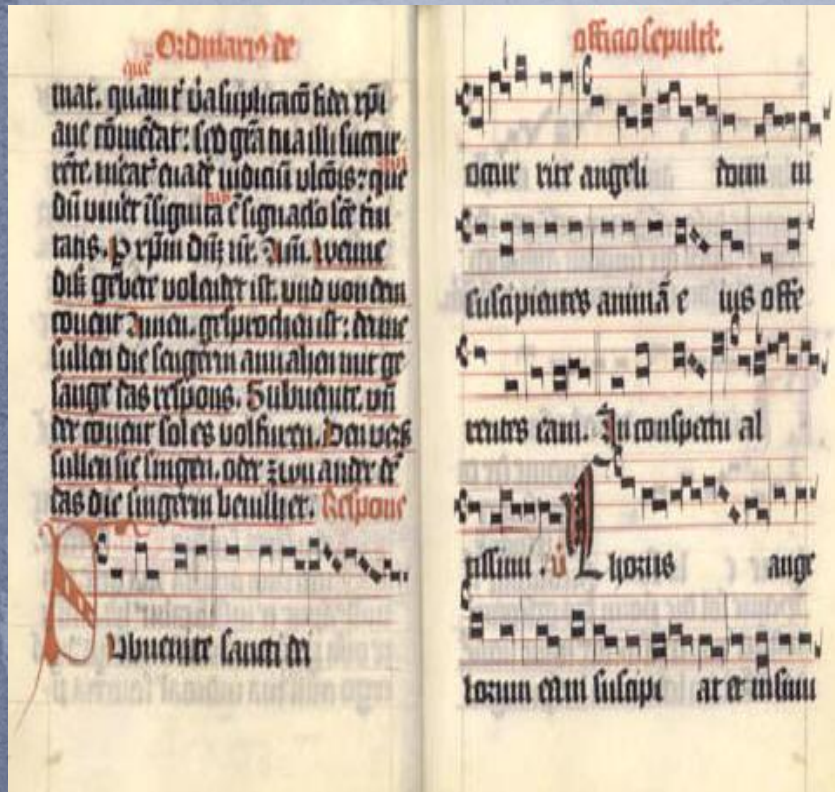 Ordinariu de
que
tuat. quam vera suplicaco fidei xpi
ane comedat: sed gra tua illi succur
rete. iudiciu vlcois: que
viuet isignita e signaclo sce tri
tatis. P xpm dnz nr. Am. Wenne
diß gebet volendet ist. vnd von dem
couent Amen. gesprochen ist: denne
sullen die sengerin anuahen mit ge
sange das respons. Subuenite. vn
der couent sol es volfuren. Den vers
sullen sie singen. oder zwu ander
das die singerin beuilhet. Respons
Subuenite sancti dei
officio sepult.
occur rite angeli domi ni
suscipientes animā e ius offe
rentes eam. In conspectu al
tissimi. v Chorus ange
lorum eam suscipi at et in sinu